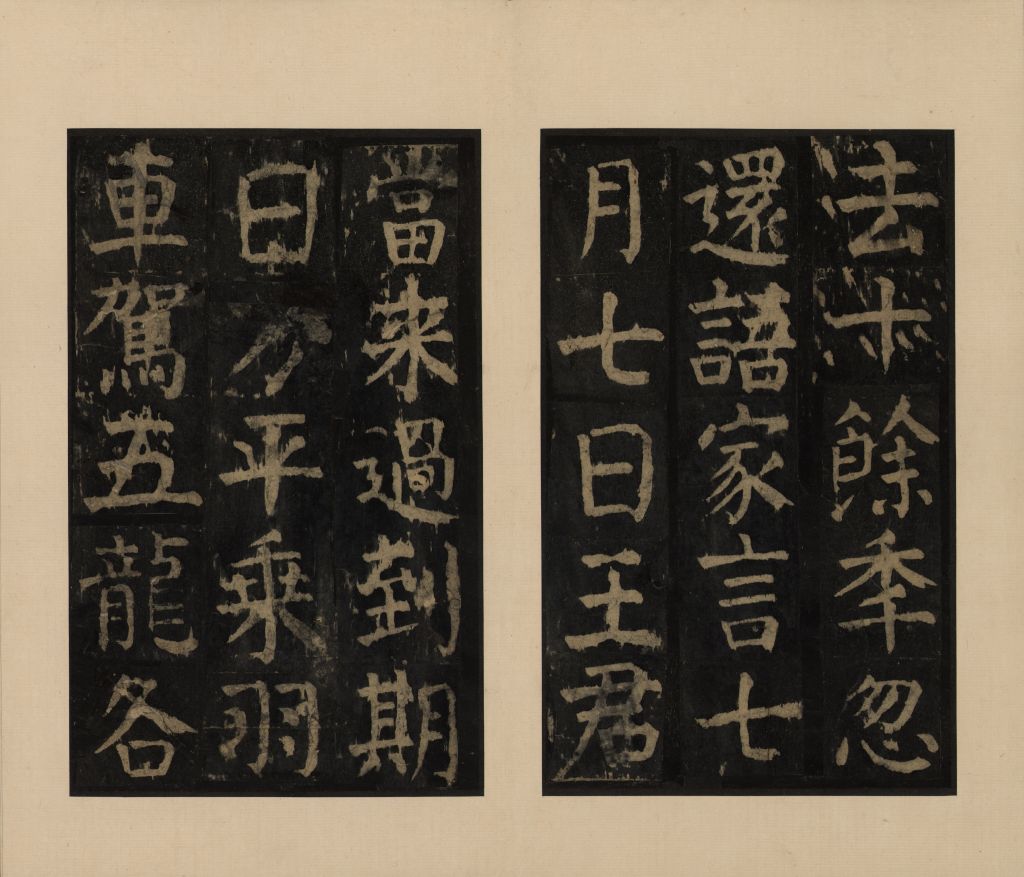 法十餘季忽
還語家言七
月七日王君
當來過到期
日方平乗羽
車駕五龍各